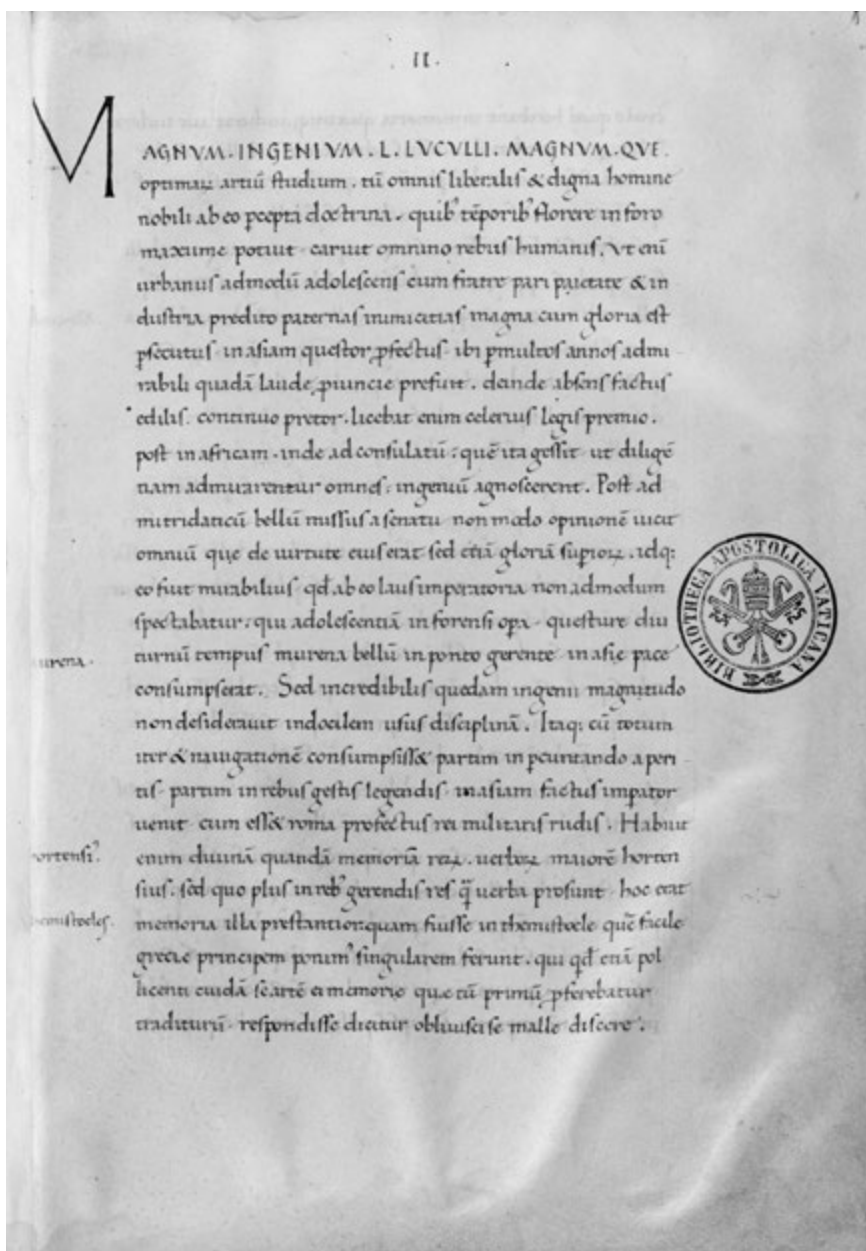 II.
MAGNVM. INGENIVM. L. LVCVLLI. MAGNVM. QVE.
optimaꝝ artiū studium. tū omnis liberalis & digna homine
nobili ab eo ꝑcepta doctrina. quib' tēporib' florere in foro
maxume potuit caruit omnino rebus humanis. Vt eni͂
urbanus admodū adolescens cum fratre pari pietate & in
dustria predito paternas inimicitias magna cum gloria est
ꝑsecutus in asiam questor ꝓfectus ibi ꝑmultos annos admi
rabili quadā laude ꝓuincie prefuit. deinde absens factus
edilis. continuo pretor. licebat enim celerius legis premio.
post in africam. inde ad consulatū: quē ita gessit ut diligē
tiam admirarentur omnes: ingeniū agnoscerent. Post ad
mitridaticū bellū missus a senatu non modo opinionē uicit
omniū que de uirtute eius erat sed etiā gloriā suꝑioꝝ. idq;
eo fuit mirabilius qd̄ ab eo laus imperatoria non admodum
spectabatur: qui adolescentiā in forensi oꝑa. questure diu
turnū tempus murena bellū in ponto gerente in asie pace
consumpserat. Sed incredibilis quedam ingenii magnitudo
non desiderauit indocilem usus disciplinā. Itaq; cū totum
iter & nauigationē consumpsiss& partim in ꝑcuntando a peri
tis partim in rebus gestis legendis in asiam factus imꝑator
uenit cum ess& roma profectus rei militaris rudis. Habuit
enim diuinā quandā memoriā reꝝ. uerboꝝ maiorē horten
sius. sed quo plus in reb' gerendis res q̄ uerba prosunt. hoc erat
memoria illa prestantior: quam fuisse in themistocle quē facile
grecie principem ponim' singularem ferunt. qui qd̄ etiā pol
licenti cuidā se artē ei memorie que tū primū ꝓferebatur
traditurū. respondisse dicitur obliuisci se malle discere.
urena.
ortensi'.
emistocles.
BIBLIOTHECA APOSTOLICA VATICANA